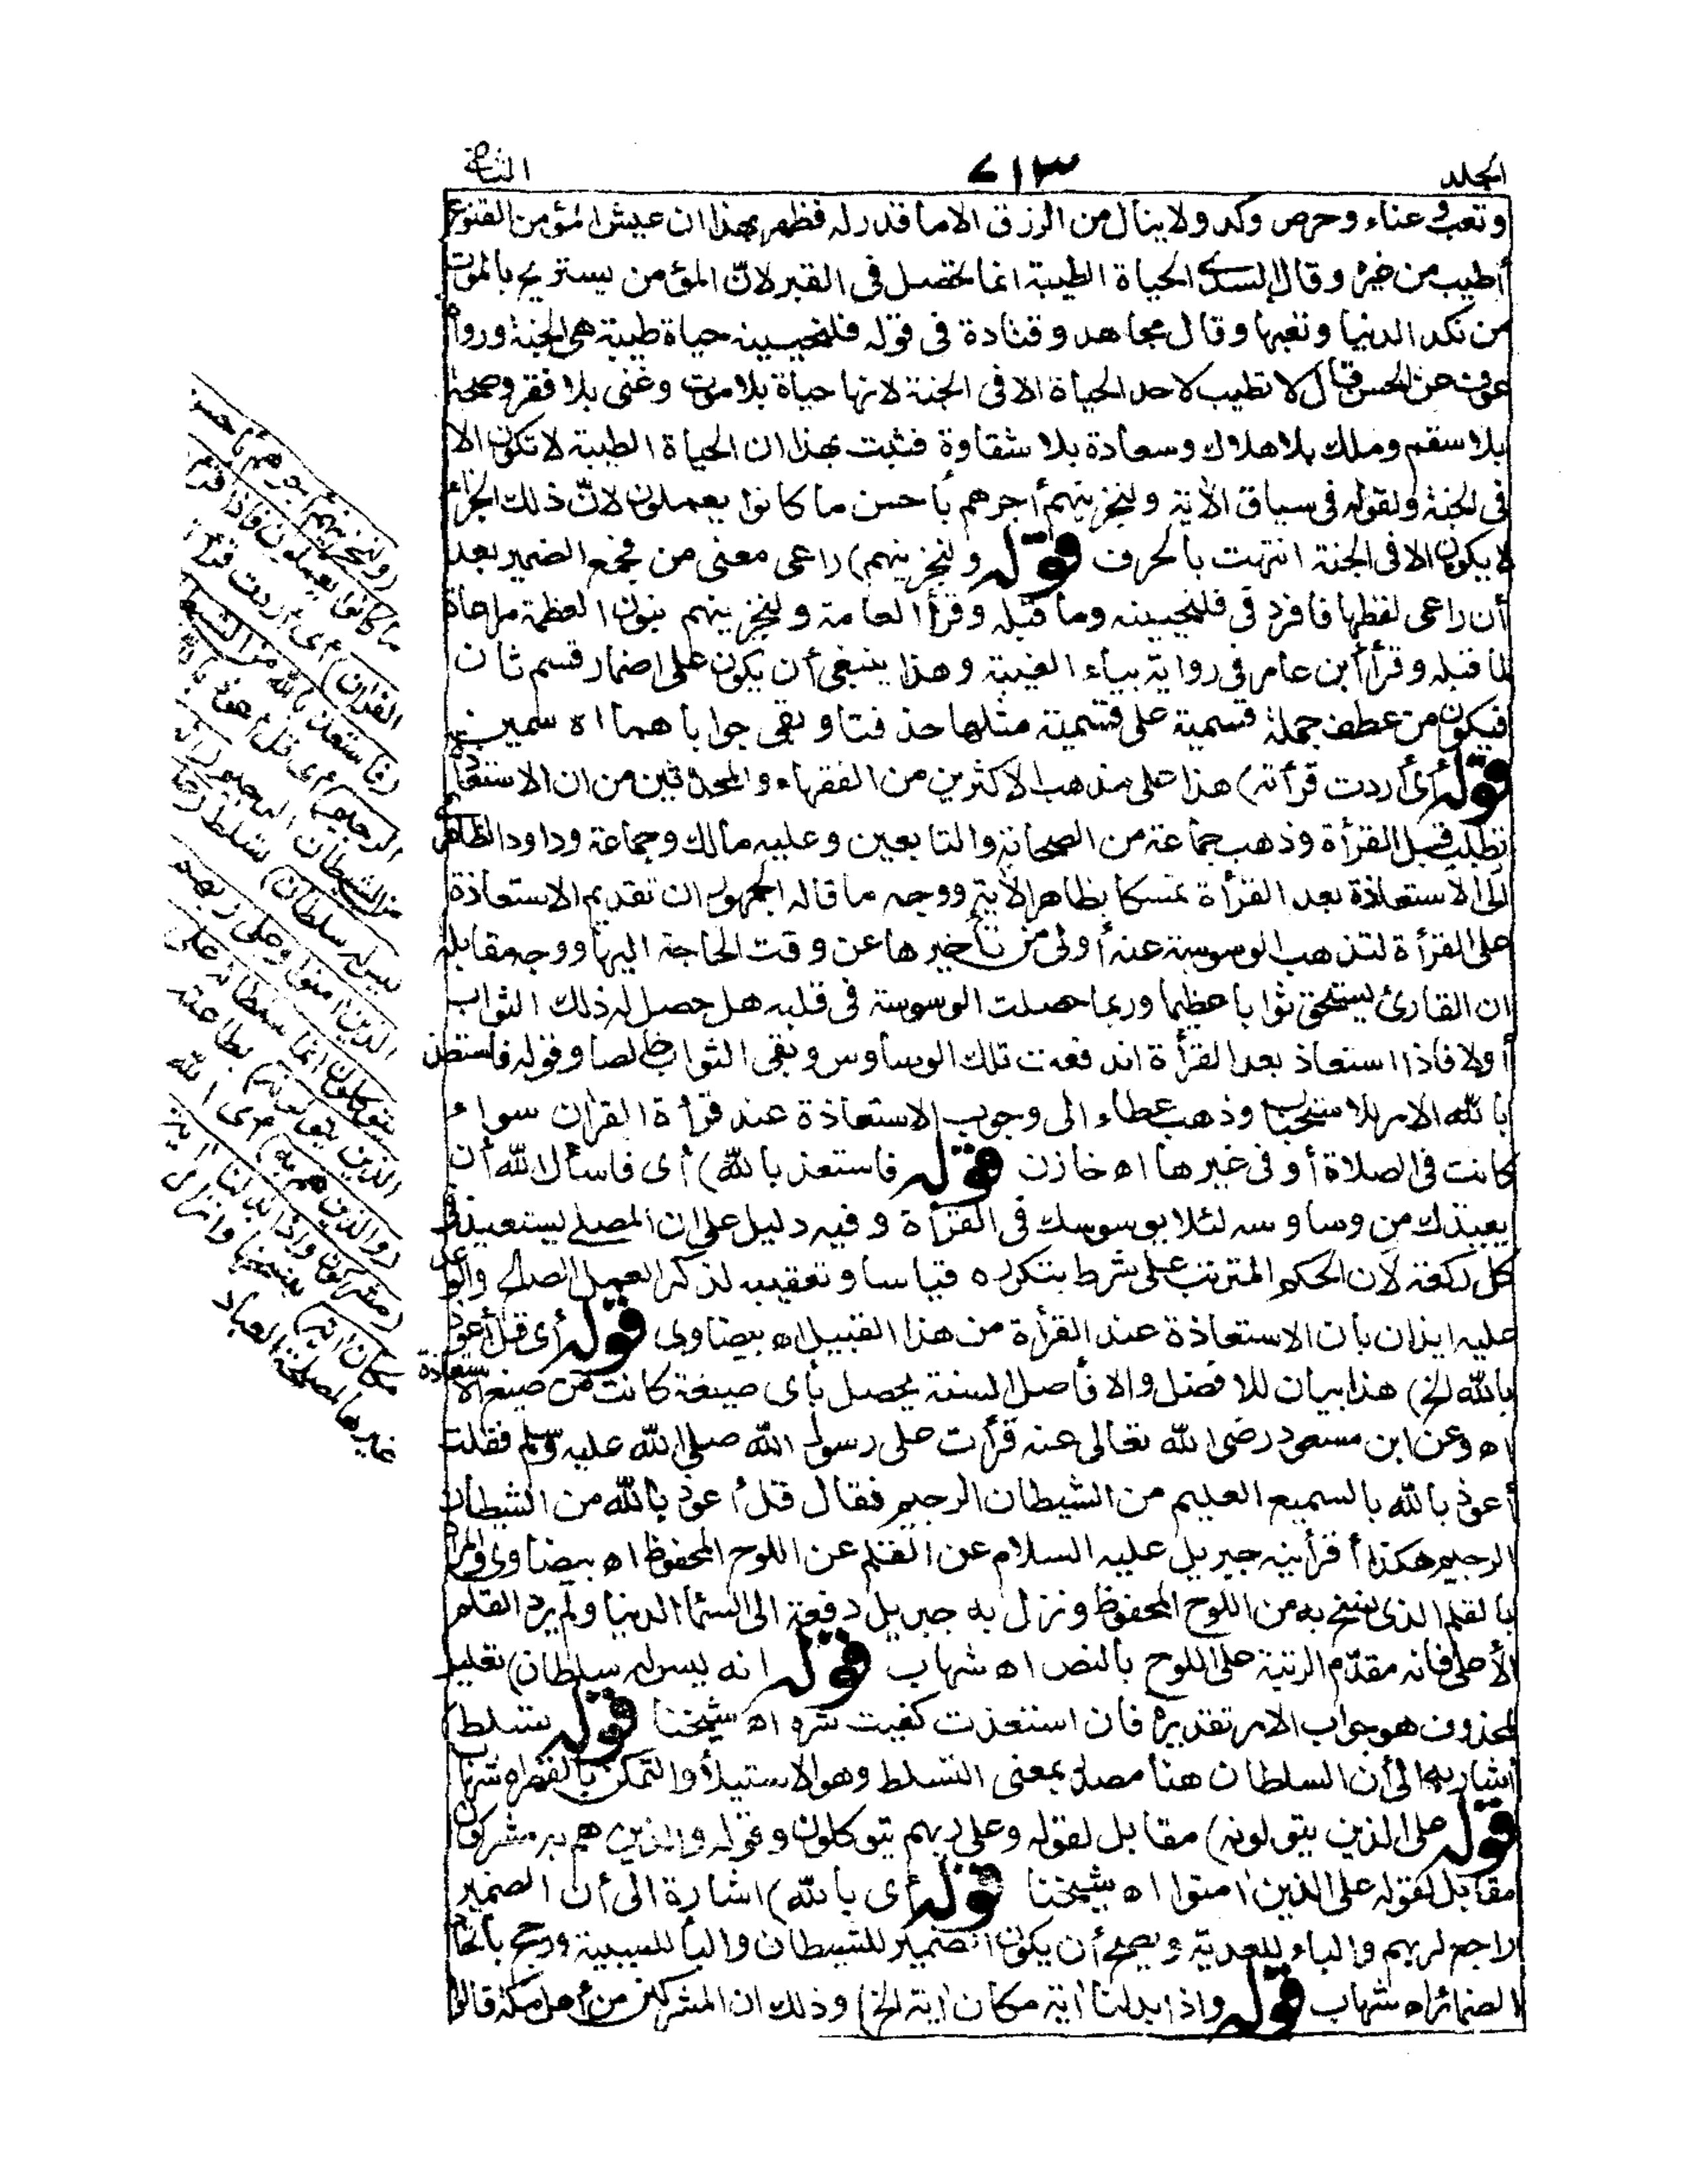 الجلد
٧١٣
وتعب وعناء وحرص وكد ولا ينال من الرزق الا ما قدر له فظهر بهذا ان عيش المؤمن القنوع
أطيب من غيره وقال السدى الحياة الطيبة انما تحصل فى القبر لانّ المؤمن يستريح بالموت
من نكد الدنيا وتعبها وقال مجاهد وقتادة فى قوله فلنحيينه حياة طيبة هى الجنة وروا
عوف عن الحسن قال لا تطيب لاحد الحياة الا فى الجنة لانها حياة بلا موت وغنى بلا فقر وصحة
بلا سقم وملك بلا هلاك وسعادة بلا شقاوة فثبت بهذا ان الحياة الطيبة لا تكون الا
فى الجنة ولقوله فى سياق الآية ولنجزينهم أجرهم بأحسن ما كانوا يعملون لانّ ذلك الجزاء
لا يكون الا فى الجنة انتهت بالحرف قوله ولنجزينهم) راعى معنى من فجمع الضمير بعد
أن راعى لفظها فافرد فى فلنحيينه وما قبله وقرأ العامة ولنجزينهم بنون العظمة مراعاة
لما قبله وقرأ أبن عامر فى رواية بياء الغيبة وهذا ينبغى أن يكون على اضمار قسم ثان
فيكون من عطف جملة قسمية على قسمية مثلها حذفتا وبقى جواباهما اه سمين
قوله أى أردت قرأته) هذا على مذهب الاكثرين من الفقهاء والمحدثين من ان الاستعاذة
تطلب قبل القرأة وذهب جماعة من الصحابة والتابعين وعليه مالك وجماعة وداود الظاهرى
الى الاستعاذة بعد القرأة تمسكا بظاهر الآية ووجه ما قاله الجمهور ان تقديم الاستعاذة
على القرأة لتذهب الوسوسة عنه أولى من تأخيرها عن وقت الحاجة اليها ووجه مقابله
ان القارئ يستحق ثوابا عظيما وربما حصلت الوسوسة فى قلبه هل حصل له ذلك الثواب
أولا فاذا استعاذ بعد القرأة اندفعت تلك الوساوس وبقى الثواب خالصا وقوله فاستعذ
بالله الامر للاستحباب وذهب عطاء الى وجوب الاستعاذة عند قرأة القرآن سواء
كانت فى الصلاة أو فى غيرها اه خازن قوله فاستعذ بالله) أى فاسأل الله أن
يعيذك من وساوسه لئلا يوسوسك فى القرأة وفيه دليل على ان المصلى يستعيذ فى
كل ركعة لان الحكم المترتب على شرط يتكرره قياسا وتعقيبه لذكر العمل الصالح والوعد
عليه ايذان بان الاستعاذة عند القرأة من هذا القبيل اه بيضاوى قوله أى قل أعوذ
بالله الخ) هذا بيان للافضل والا فأصل السنة يحصل بأى صيغة كانت من صيغ الاستعاذة
اه وعن ابن مسعود رضى الله تعالى عنه قرأت على رسول الله صلى الله عليه وسلم فقلت
أعوذ بالله بالسميع العليم من الشيطان الرجيم فقال قل أعوذ بالله من الشيطان
الرجيم هكذا أقرأنيه جبريل عليه السلام عن القلم عن اللوح المحفوظ اه بيضاوى والمراد
بالقلم الذى نسخ به من اللوح المحفوظ ونزل به جبريل دفعة الى السماء الدنيا ولم يرد القلم
الأعلى فانه مقدّم الرتبة على اللوح بالنص اه شهاب قوله انه ليس له سلطان) تعليل
لمحذوف هو جواب الامر تقديره فان استعذت كفيت شره اه شيخنا قوله تسلط)
أشار به الى أن السلطان هنا مصدر بمعنى التسلط وهو الاستيلاء والتمكن بالقهر اه شهاب
قوله على الذين يتولونه) مقابل لقوله وعلى ربهم يتوكلون وقوله والذين هم به مشركون
مقابل لقوله على الذين امنوا اه شيخنا قوله أى بالله) اشارة الى أن الضمير
راجع لربهم والباء للتعدية ويصح أن يكون الضمير للشيطان والباء للسببية ورجح باتحاد
الضمائر اه شهاب قوله واذا بدلنا اية مكان اية الخ) وذلك ان المشركين من أهل مكة قالوا
(ولنجزينهم أجرهم بأحسن
ما كانوا يعملون فاذا قرأت
القرآن) أى أردت قرأته
(فاستعذ بالله من الشيطان
الرجيم) أى قل أعوذ بالله
من الشيطان الرجيم (انه
ليس له سلطان) تسلط (على
الذين امنوا وعلى ربهم
يتوكلون انما سلطانه على
الذين يتولونه) بطاعته
(والذين هم به) أى الله
(مشركون واذا بدلنا اية
مكان اية) بنسخها وانزال
غيرها لمصلحة العباد